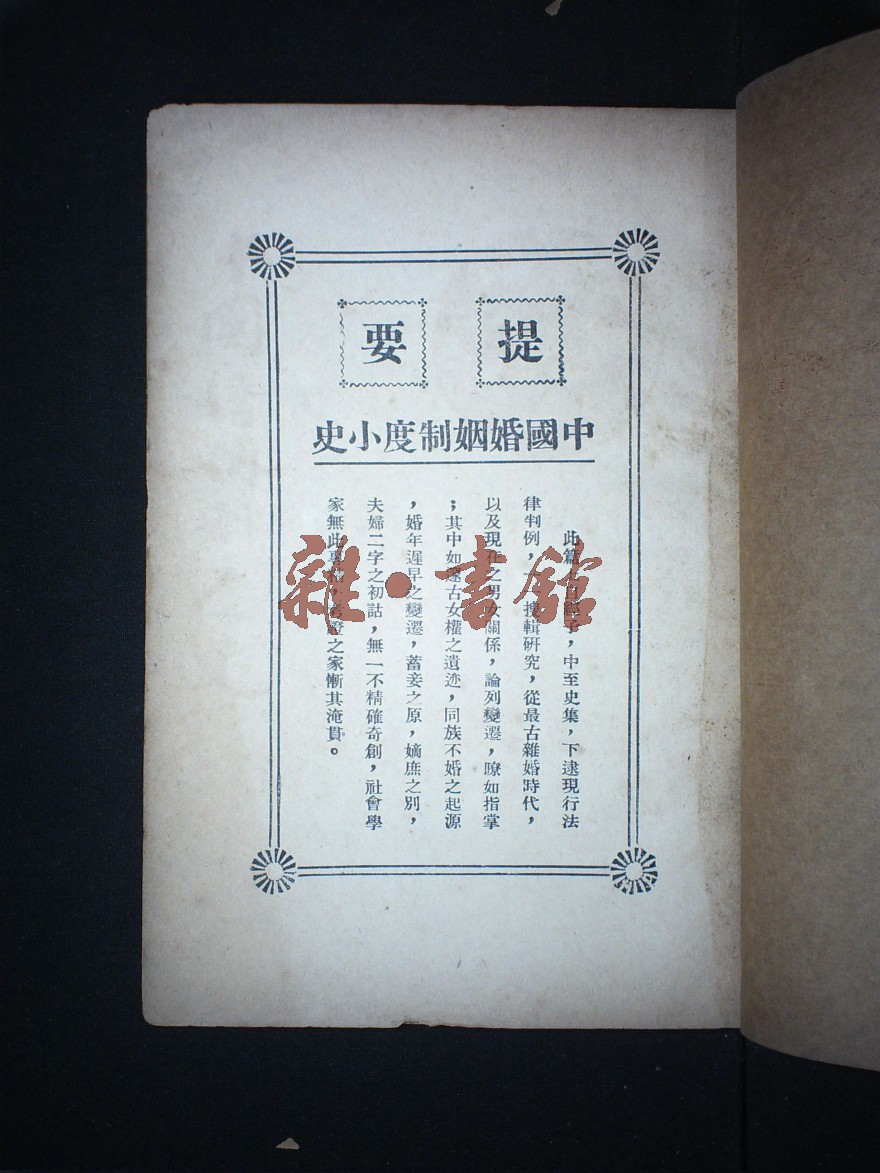 提要
中國婚姻制度小史
此篇上自經子，中至史集，下逮現行法
律判例，搜輯研究，從最古雜婚時代，
以及現在之男女關係，論列變遷，瞭如指掌
；其中如邃古女權之遺迹，同族不婚之起源
，婚年遲早之變遷，蓄妾之原，嫡庶之別，
夫婦二字之初詁，無一不精確奇創，社會學
家無此專，考證之家慚其淹貫。
雜·書館